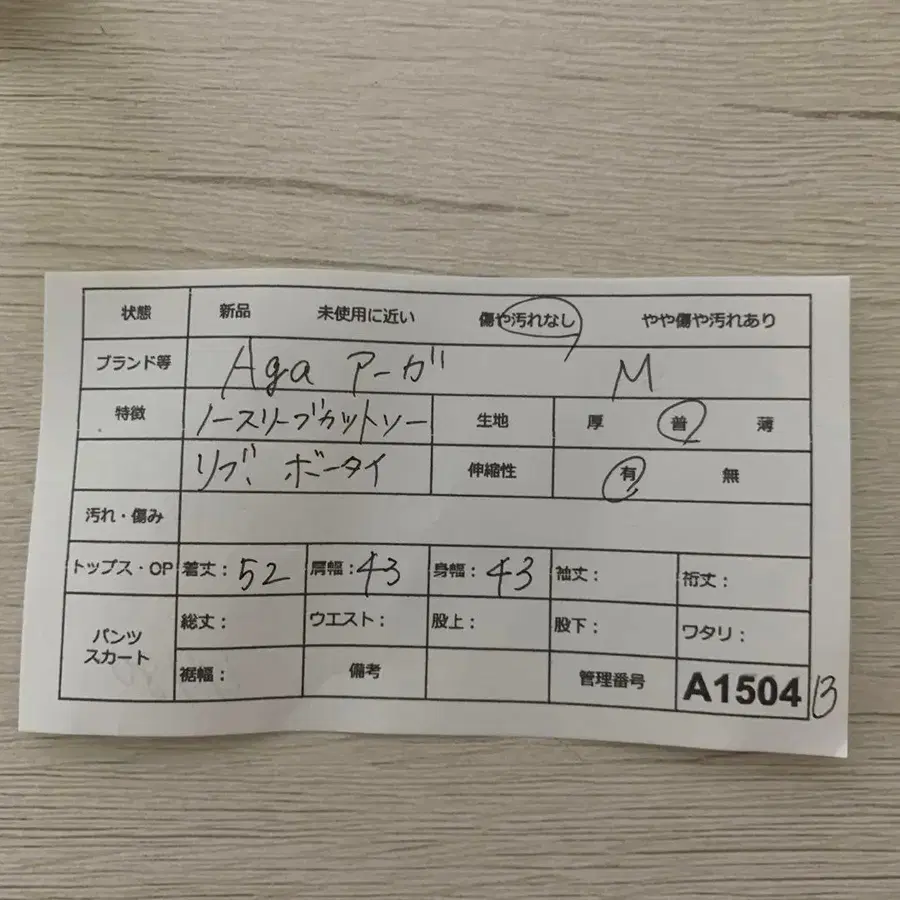 状態 新品 未使用に近い 傷や汚れなし やや傷や汚れあり
ブランド等 Aga アーガ M
特徴 ノースリーブカットソー 生地 厚 普 薄
リブ、ボータイ 伸縮性 有 無
汚れ・傷み
トップス・OP 着丈：52 肩幅：43 身幅：43 袖丈： 裄丈：
パンツ スカート 総丈： ウエスト： 股上： 股下： ワタリ：
裾幅： 備考 管理番号 A1504 B